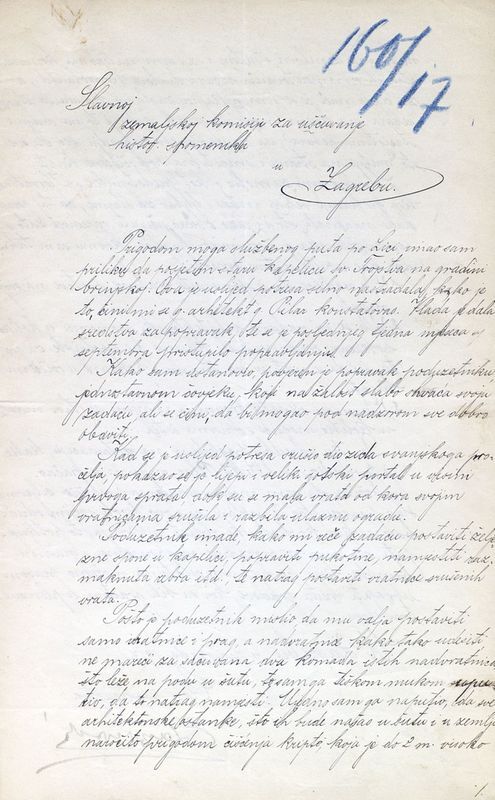 160/17
Slavnoj
zemaljskoj komisiji za uščuvanje
histor. spomenika
u
Zagrebu.
Prigodom moga službenog puta po Lici imao sam
priliku da posjetim staru kapelicu sv. Trojstva na gradini
brinjskoj. Ova je uslijed potresa silno nastradala, kako je
to, čini mi se g. arhitekt g. Pilar konstatovao. Vlada je dala
sredstva za popravak, te se je posljednjeg tjedna mjeseca
septembra pristupilo popravljanju.
Kako sam ustanovio, povjeren je popravak poduzetniku
jednostavnom čovjeku, koji na žalost slabo shvaća svoju
zadaću, ali se čini, da bi mogao pod nadzorom sve dobro
obaviti.
Kad se je uslijed potresa srušio dio zida svanjskoga pro-
čelja, pokazao se je lijepi i veliki gotski portal u visini
prvoga sprata, dok su se mala vrata od kora svojim
vratnicama srušila i razbila ulaznu ogradu.
Poduzetnik imade, kako mi reče zadaću postaviti želje-
zne spone u kapelici, popraviti pukotine, namjestiti raz-
maknuta rebra itd. te natrag postaviti vratnice srušenih
vrata.
Pošto je poduzetnik mislio da mu valja postaviti
samo vratnice i prag, a nadvratnike kako tako udesiti,
ne mareći za sačuvana dva komada istih nadvratnica
što leže na podu u šutu, te sam ga teškom mukom
da to natrag namjesti. Ujedno sam ga naputio, da sve
arhitektonske ostanke, što ih bude našao u šutu i u zemlji
naročito prigodom čišćenja kripte, koja je do 2 m. visoko
./.